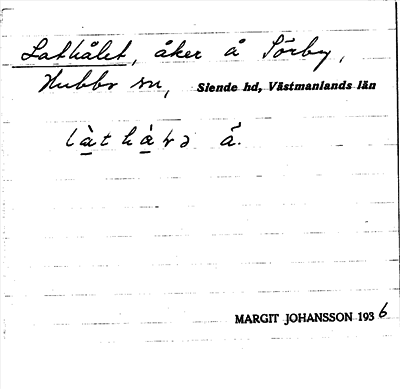 Lathålet, åker å Sörby,
Hubbo sn, Siende hd, Västmanlands län
làthàḷə å.
MARGIT JOHANSSON 1936